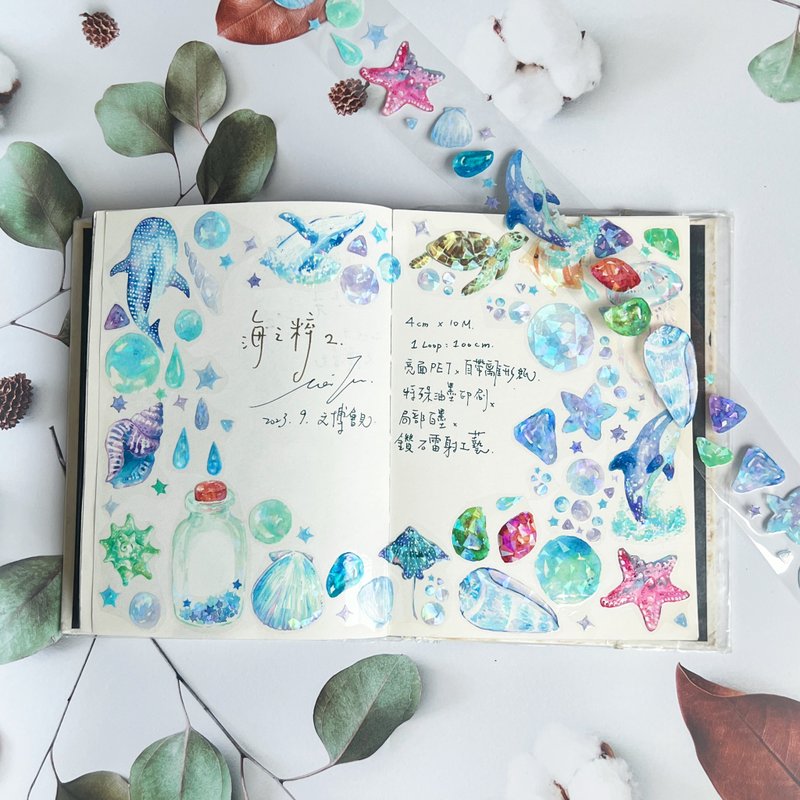 海之粹2.
2023.9.文博會見.
4cm x 10M.
1 Loop：100cm.
亮面PET x 自帶離形紙.
特殊油墨印刷x
局部白墨x
鑽石雷射工藝.